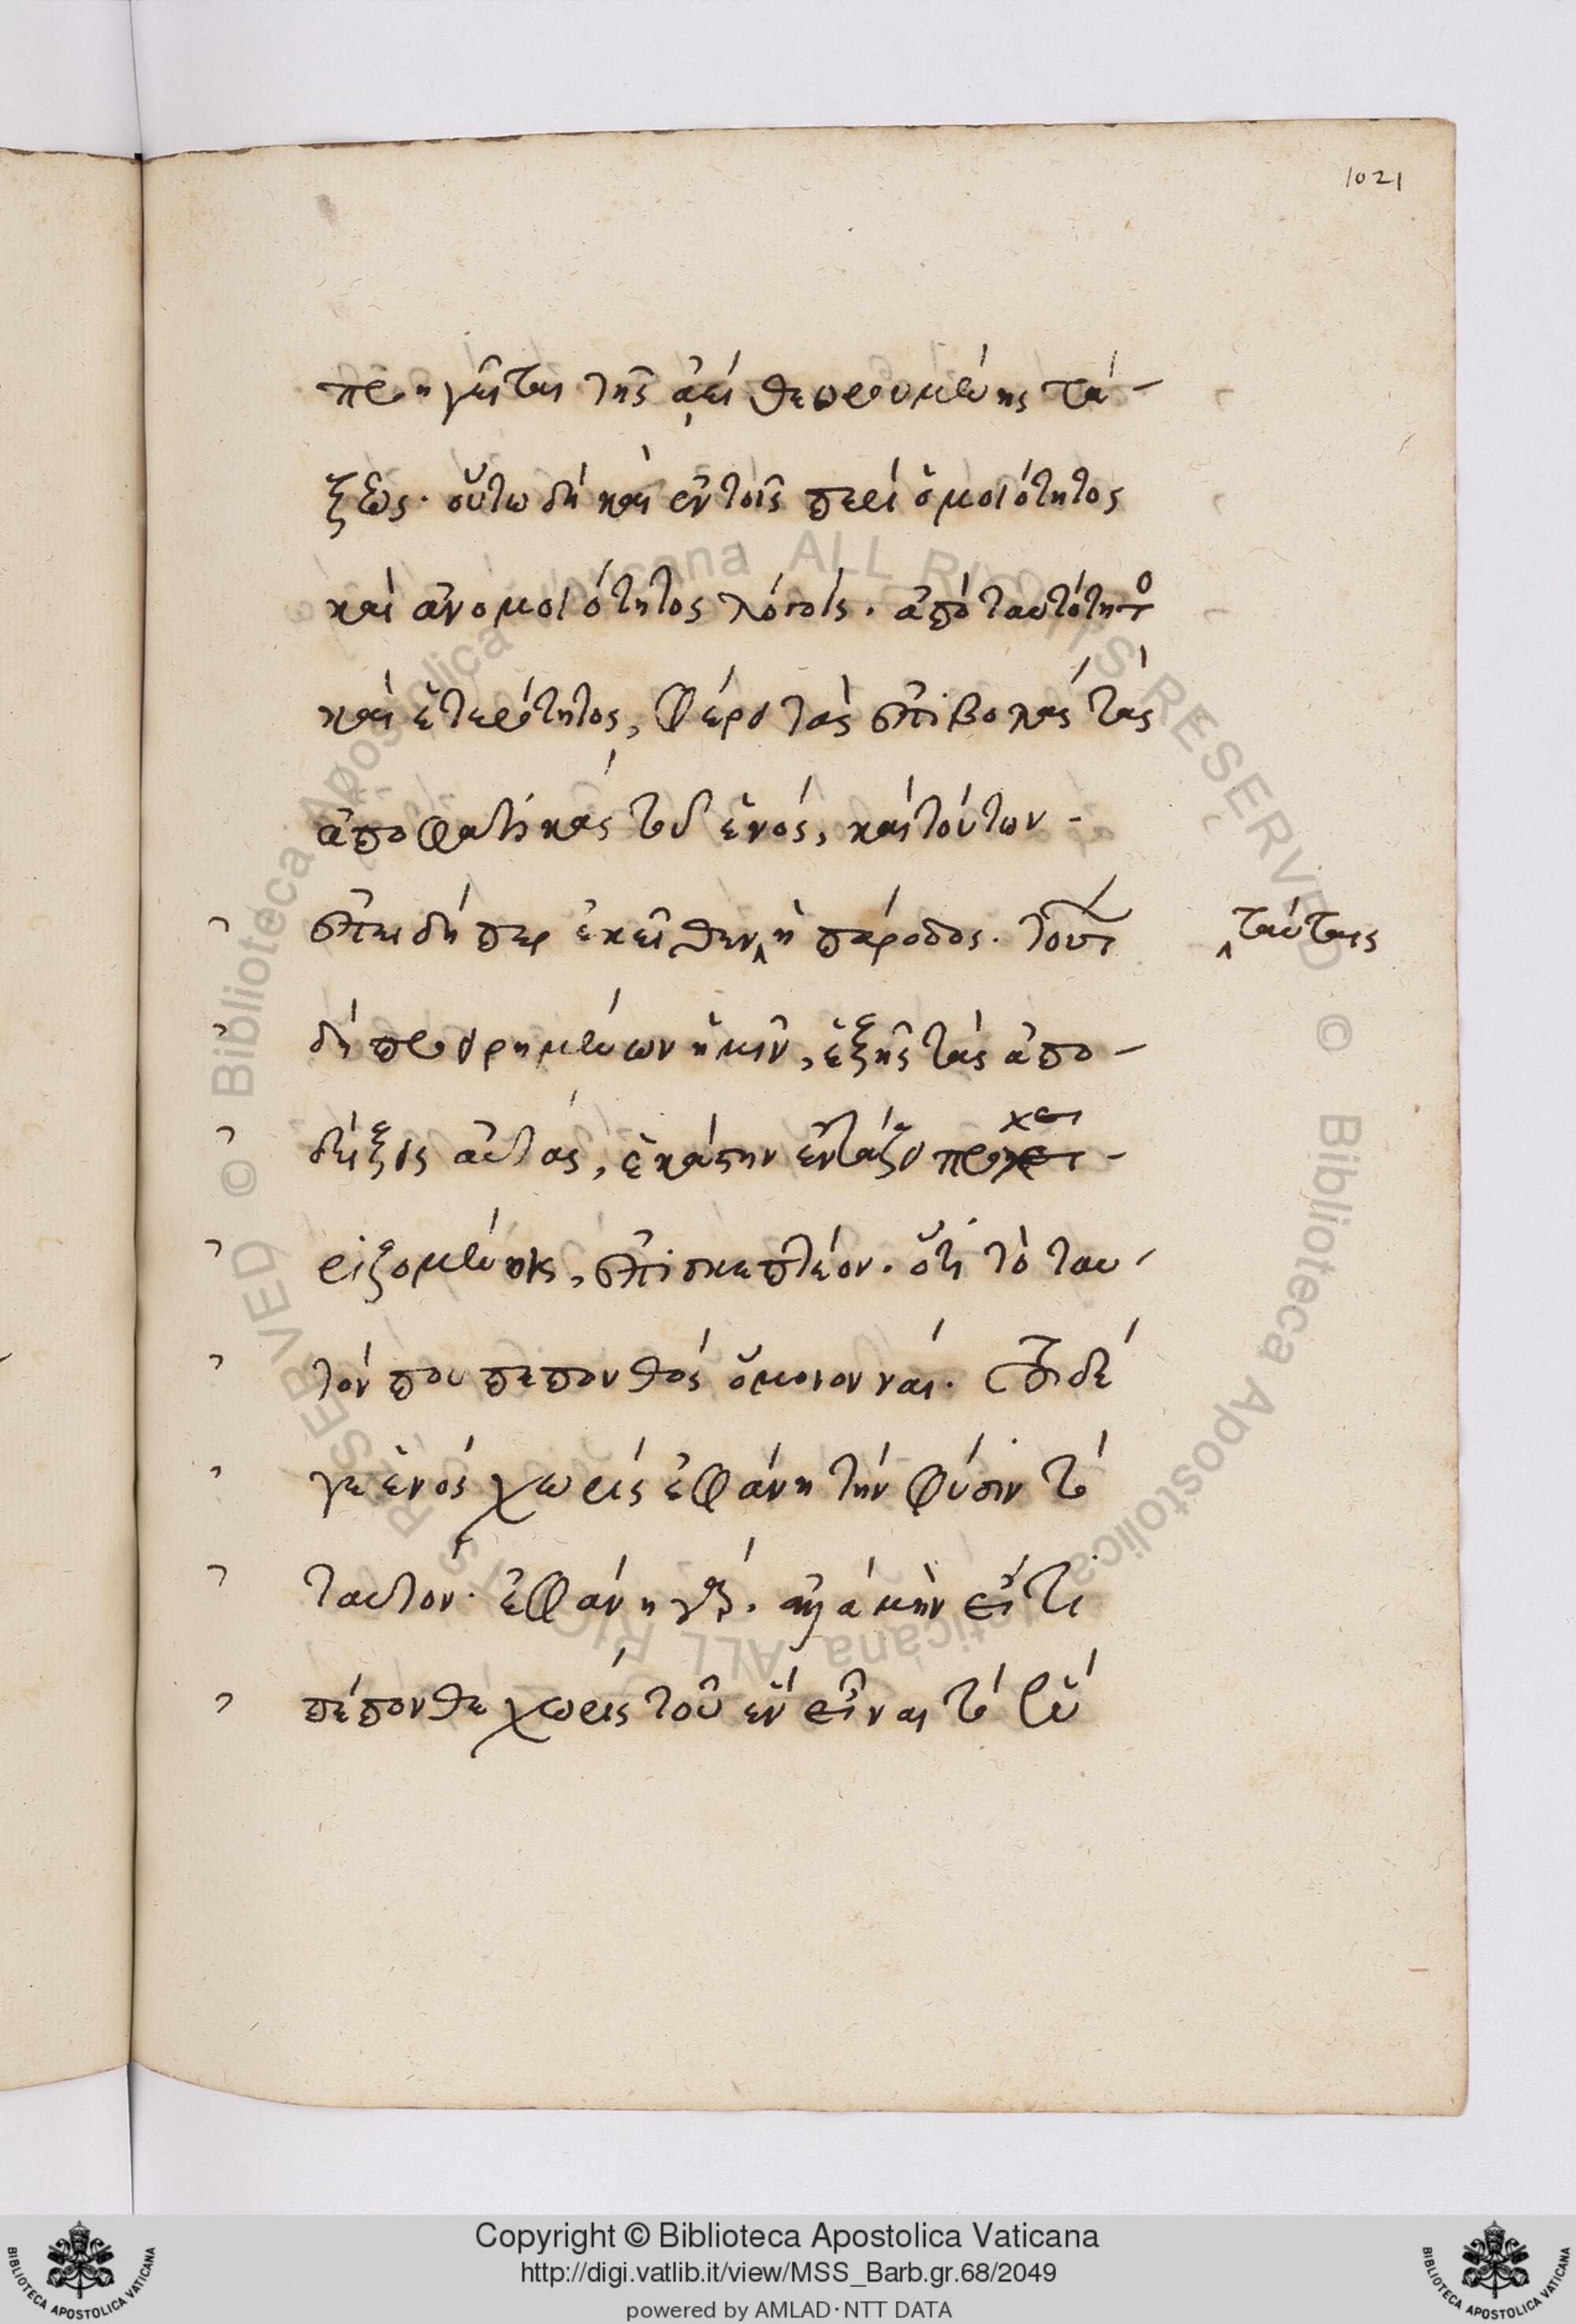 1021
προηγεῖται τῆς ἀεὶ θεωρουμένης τά-
ξεως· οὕτω δὴ καὶ ἐν τοῖς περὶ ὁμοιότητος
καὶ ἀνομοιότητος λόγοις. ἀπὸ ταυτότητος
καὶ ἑτερότητος, φέρει τὰς ἐπιβολὰς τὰς
ἀποφατικὰς τοῦ ἑνός, καὶ τούτων-
ἐπειδήπερ ἐκεῖθεν ἡ πάροδος. τούτων
ταύταις
δὴ προειρημένων ἡμῖν, ἑξῆς τὰς ἀπο-
δείξεις αὐτὰς, ἑκάστην ἐν τάξει προχει-
ριζομένοις, ἐπισκεπτέον. ὅτι τὸ ταυ-
τόν που πεπονθὸς ὅμοιον ναί. τοῦ δέ
γε ἑνὸς χωρὶς ἐφάνη τὴν φύσιν τὸ
ταυτόν. ἐφάνη γάρ. ἀλλὰ μὴν εἴ τι
πέπονθε χωρὶς τοῦ ἓν εἶναι τὸ ἓν
Copyright © Biblioteca Apostolica Vaticana
http://digi.vatlib.it/view/MSS_Barb.gr.68/2049
powered by AMLAD·NTT DATA
BIBLIOTECA APOSTOLICA VATICANA
BIBLIOTECA APOSTOLICA VATICANA
© Biblioteca Apostolica Vaticana ALL RIGHTS RESERVED
© Biblioteca Apostolica Vaticana ALL RIGHTS RESERVED